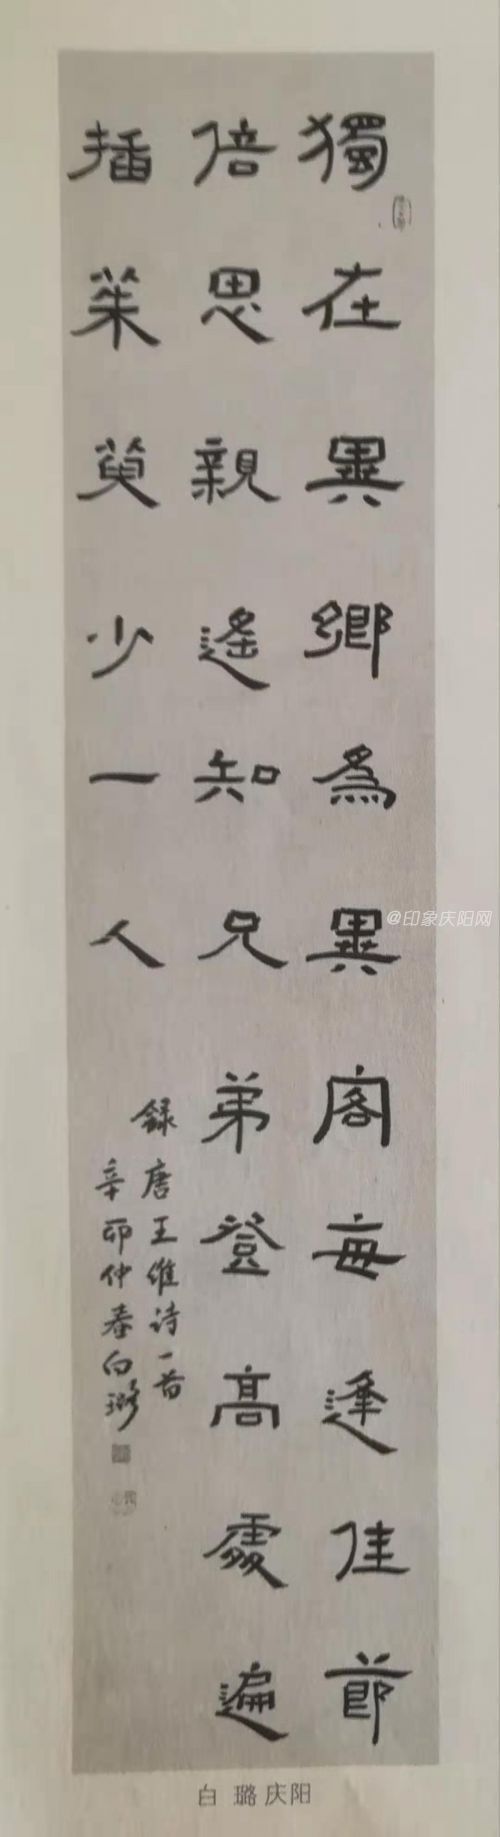 獨在異鄉為異客每逢佳節
倍思親遙知兄弟登高處遍
插茱萸少一人
録唐王維诗一首
辛卯仲春白璐
@印象庆阳网
白 璐 庆阳